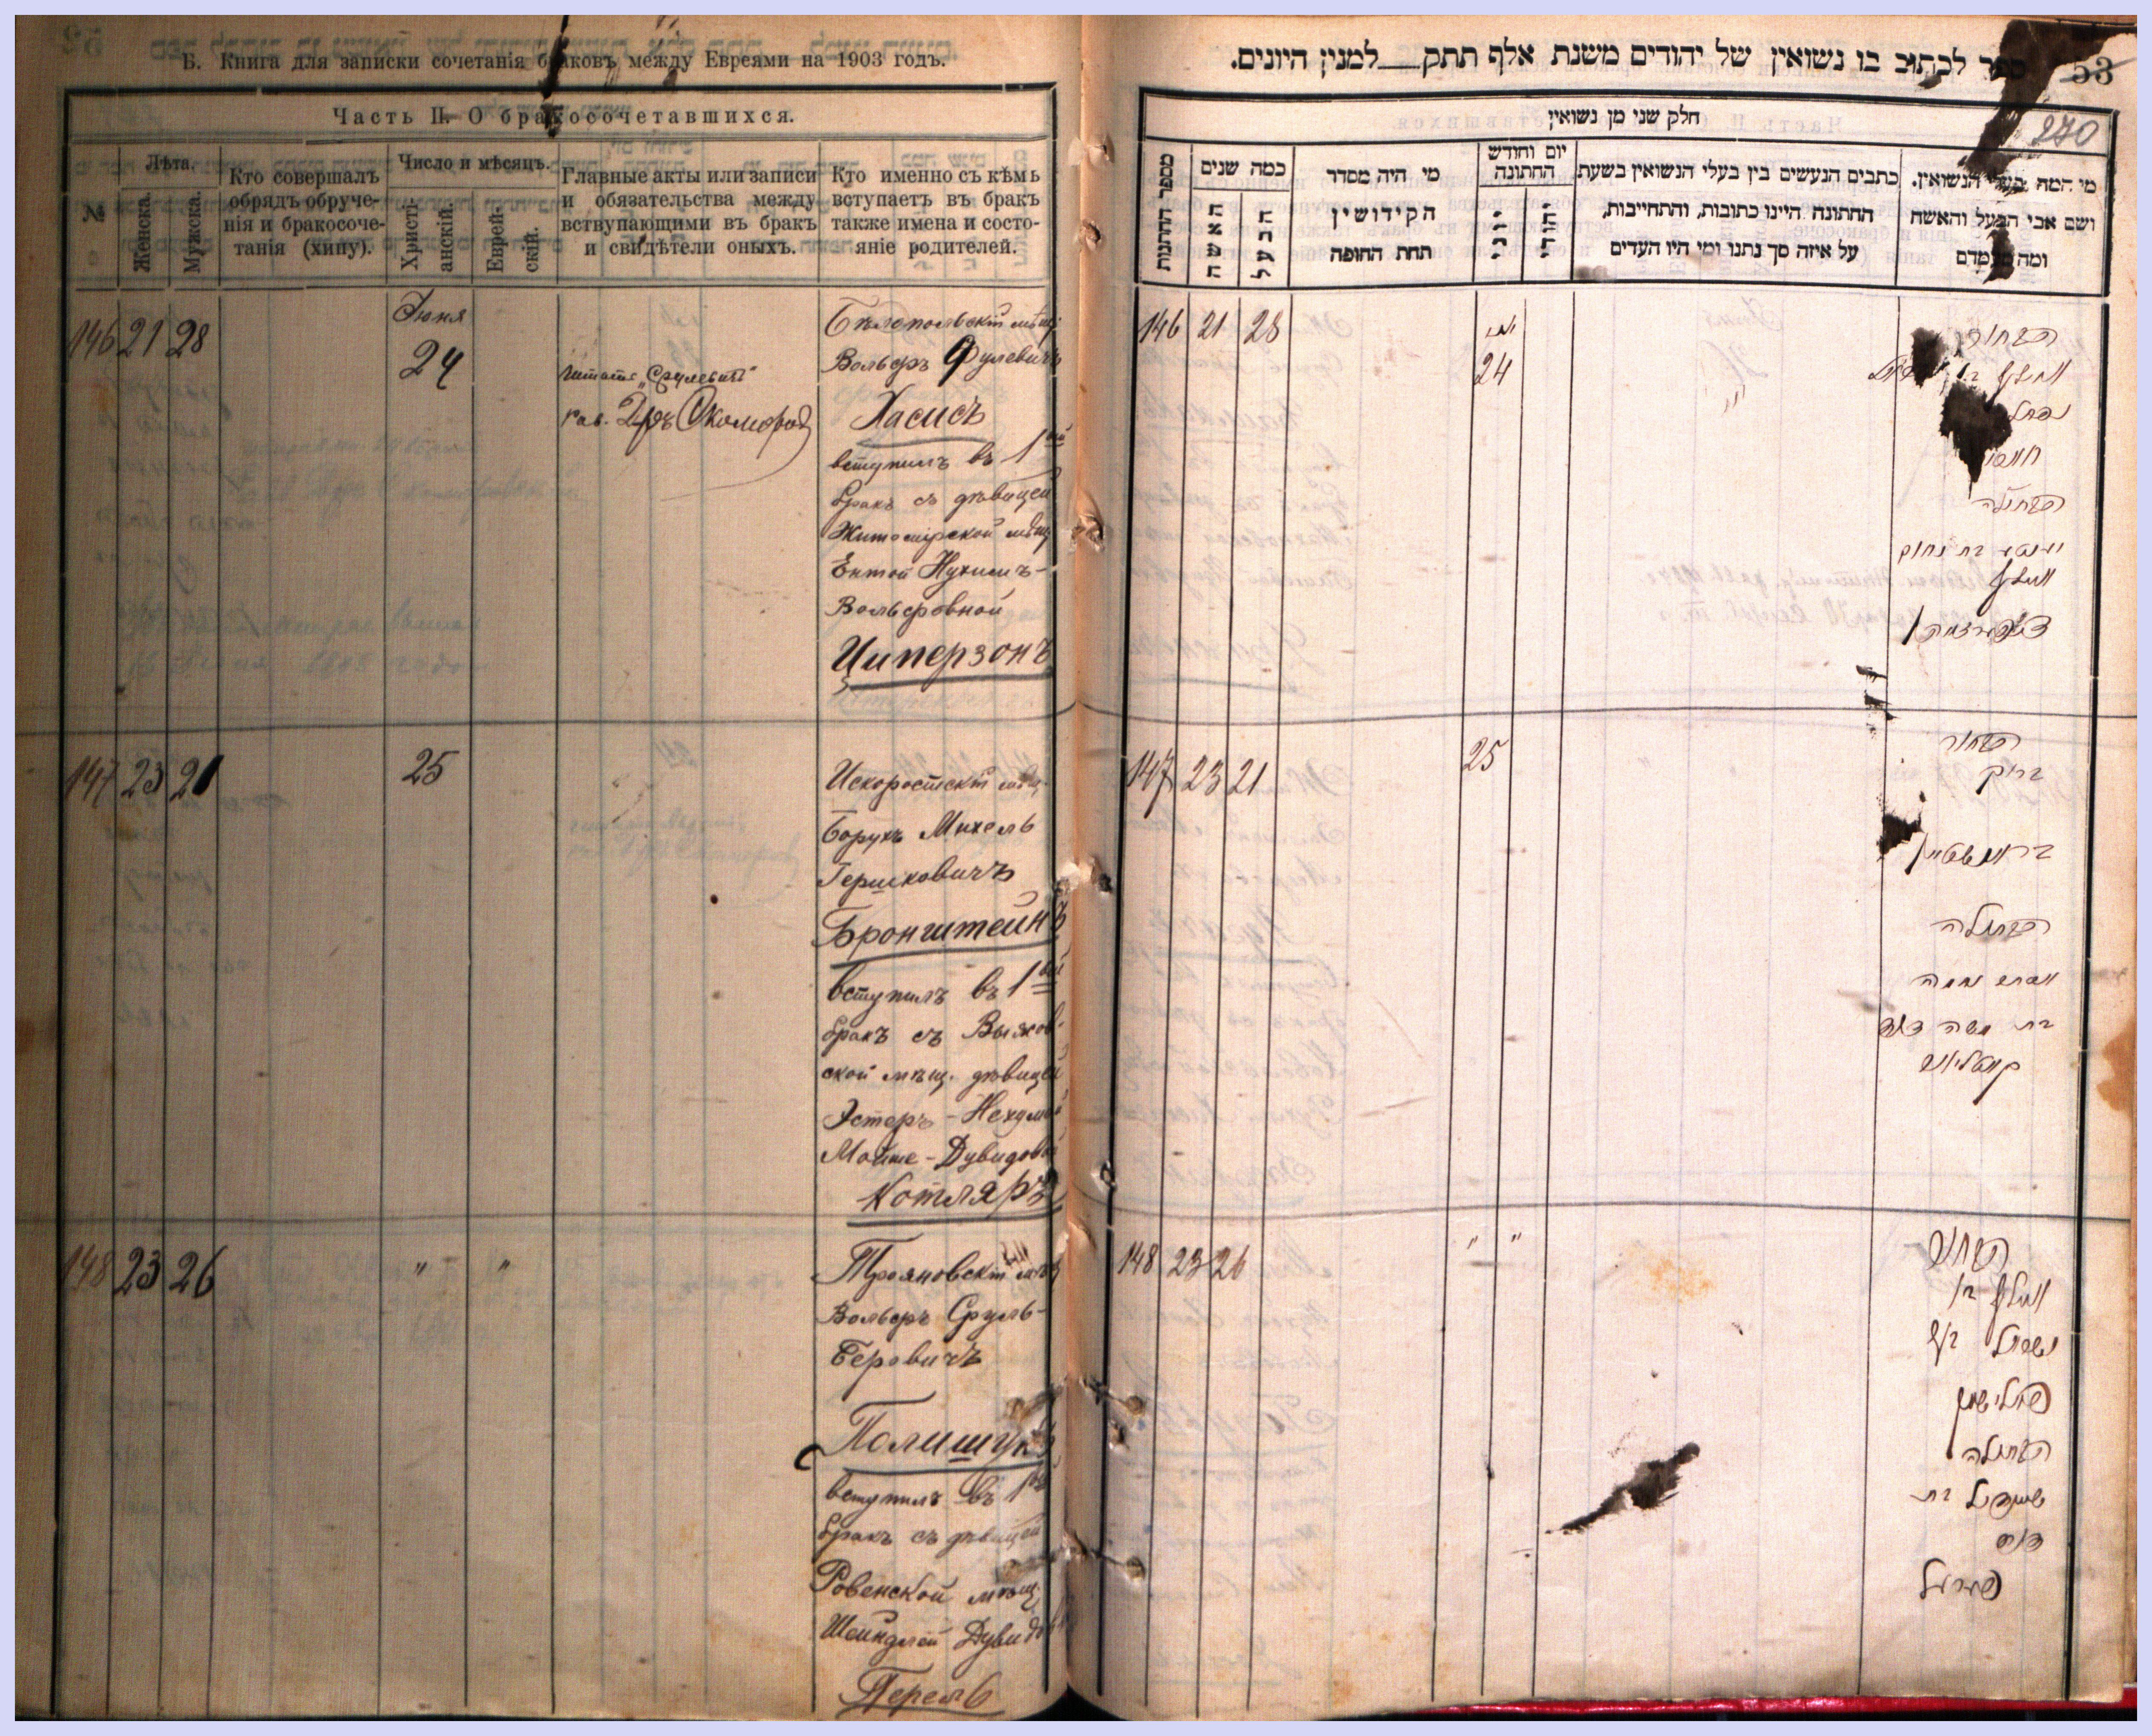 Б. Книга для записки сочетанія браковъ между Евреями на 1903 годъ.
Часть II. О бракосочетавшихся.
№
Лѣта.
Женска.
Мужска.
Кто совершалъ
обрядъ обруче-
нія и бракосоче-
танія (хипу).
Число и мѣсяцъ.
Христі-
анскій.
Еврей-
скій.
Главные акты или записи
и обязательства между
вступающими въ бракъ
и свидѣтели оныхъ.
Кто именно съ кѣмъ
вступаетъ въ бракъ
также имена и состо-
яніе родителей.
146 21 28
Іюня
24
читать „Срулевичъ"
Бѣлопольскій мѣщ.
Вольфъ
Хасисъ
вступилъ въ 1ый
бракъ съ дѣвицей
Житомірской мѣщ
Ентой Нухимъ-
Вольфовной
Циперзонъ
147 23 21
25
Искоростскій мѣщ.
Борухъ Михель
Гершковичъ
Бронштейнъ
вступилъ въ 1ый
бракъ съ Выхов-
ской мѣщ. дѣвицей
Эстеръ-Нехумой
Мойше-Дувидовой
Котляръ
148 23 26
" "
Трояновскій мѣщ
Вольфъ Сруль-
Беровичъ
Полищукъ
вступилъ въ 1ый
бракъ съ дѣвицей
Ровенской мѣщ.
Шейндлей Дувидов
Перель
53
ספר לכתוב בו נשואין של יהודים משנת אלף תתק__למנין היונים.
חלק שני מן נשואין
270
מספר החתונות
כמה שנים
האשה
הבעל
מי היה מסדר
הקידושין
תחת החופה
יום וחודש
החתונה
יוני
יהודי
כתבים הנעשים בין בעלי הנשואין בשעת
החתונה היינו כתובות, והתחייבות,
על איזה סך נתנו ומי היו העדים
מי המה בעלי הנשואין.
ושם אבי הבעל והאשה
ומה מעמדם
146 21 28
24
הבחור
וואלף בן
הבתולה
יענטע בת נחום
וואלף
ציפערזאן
147 23 21
25
הבחור
ברוך
בראנשטיין
הבתולה
אסתר נחמה
בת משה דוד
קאטליאר
148 23 26
" "
הבחור
וואלף בן
ישראל בער
פאלישוק
הבתולה
שיינדיל בת
דוד
פערעל